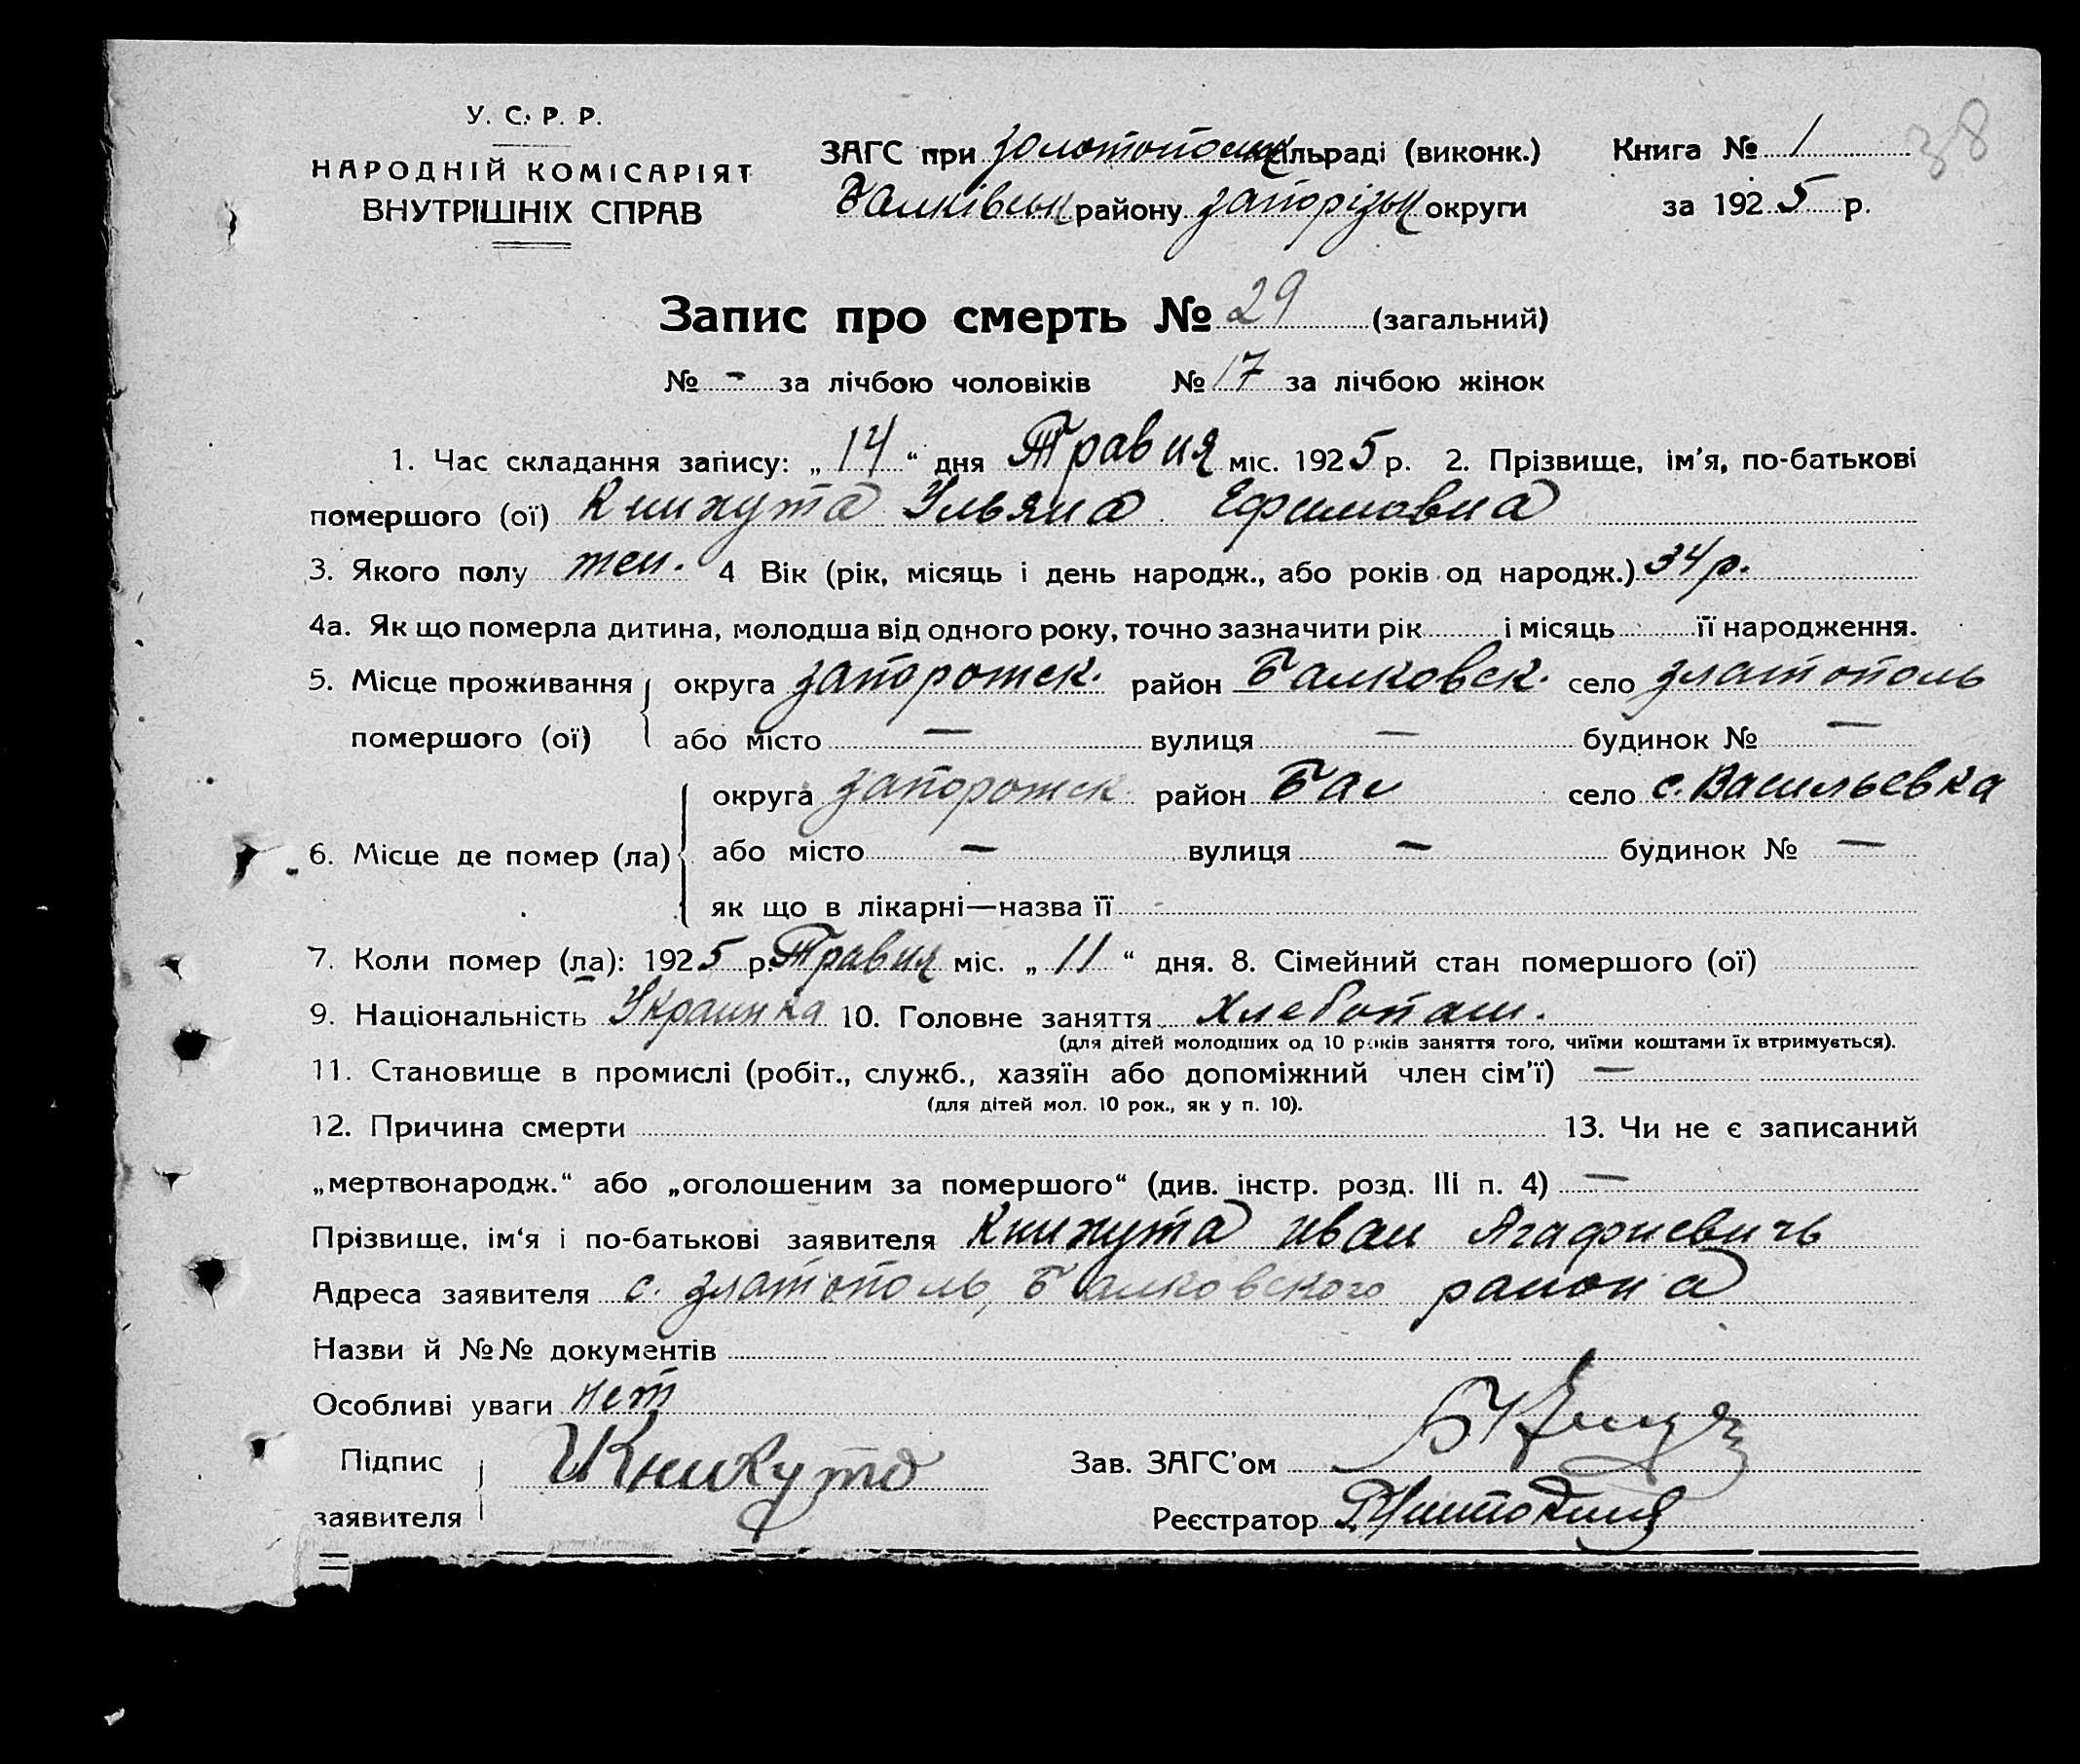 38
У. С. Р. Р.
НАРОДНІЙ КОМІСАРІЯТ
ВНУТРІШНІХ СПРАВ
ЗАГС при золотопольск сільраді (виконк.) Книга № 1
Балківськ району запорізьк округи за 1925 р.
Запис про смерть № 29 (загальний)
№ - за лічбою чоловіків № 17 за лічбою жінок
1. Час складання запису: „ 14 “ дня Травня міс. 1925 р. 2. Прізвище, ім'я, по-батькові
помершого (ої) Книжута Ульяна Ефимовна
3. Якого полу жен. 4 Вік (рік, місяць і день народж., або років од народж.) 34 р.
4а. Як що померла дитина, молодша від одного року, точно зазначити рік і місяць її народження.
5. Місце проживання округа запорожск. район Балковск. село златополь
помершого (ої) або місто — вулиця — будинок № —
округа запорожск район Бал село с. Васильевка
6. Місце де помер (ла) або місто — вулиця — будинок № —
як що в лікарні—назва її
7. Коли помер (ла): 1925 р. Травня міс. „ 11 “ дня. 8. Сімейний стан помершого (ої)
9. Національність Украинка 10. Головне заняття Хлебопаш.
(для дітей молодших од 10 років заняття того, чиїми коштами їх втримується).
11. Становище в промислі (робіт., служб., хазяїн або допоміжний член сім'ї) —
(для дітей мол. 10 рок., як у п. 10).
12. Причина смерти 13. Чи не є записаний
„мертвонародж.“ або „оголошеним за помершого“ (див. інстр. розд. III п. 4) —
Прізвище, ім'я і по-батькові заявителя Книжута Иван Агафиевичь
Адреса заявителя с. златополь, Балковского района
Назви й №№ документів
Особливі уваги нет
Підпис заявителя И Книжута Зав. ЗАГС'ом
Реєстратор